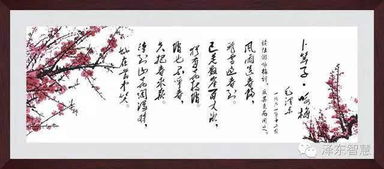 卜算子·咏梅
毛泽东
一九六一年十二月
读陆游咏梅词 反其意而用之
风雨送春归
飞雪迎春到
已是悬崖百丈冰
犹有花枝俏
俏也不争春
只把春来报
待到山花烂漫时
她在丛中笑
泽东智慧